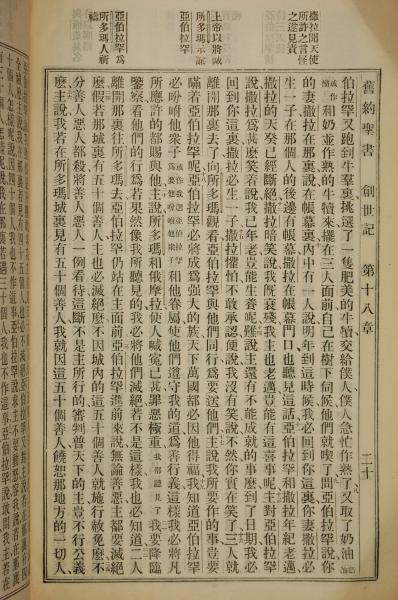 舊約聖書 創世記 第十八章 二十
伯拉罕又跑到牛羣裏挑選了一隻肥美的牛犢交給僕人僕人急忙作熟了又取了奶油
和奶並作熟的牛犢來擺在三人面前自己在樹下伺候他們就喫了問亞伯拉罕說你
的妻撒拉在那裏說在帳幕裏內中有一人說明年到這時候我必回到你這裏你妻撒拉必
生一子在那個人的後邊有帳幕撒拉在帳幕門口也聽見這話亞伯拉罕和撒拉年紀老邁
撒拉的天癸已經斷絕撒拉暗笑說我既衰殘我主也老邁豈能有這喜事呢主對亞伯拉罕
說撒拉爲甚麽笑着說我已年老豈能生養呢難說主還有不能成就的事麽到了日期我必
回到你這裏撒拉必生一子撒拉懼怕不敢承認便說我沒有笑說不然你實在笑了三人就
離開那裏去了向所多瑪觀看亞伯拉罕與他們同行爲要送他們主說我所要作的事豈要
瞞着亞伯拉罕呢亞伯拉罕必將成爲强大的族天下萬國都必因他得福我知道亞伯拉罕
必吩咐他衆子和他眷屬使他們遵守我的道爲善行義這樣我必將凡
所應許的都賜與他主說所多瑪和俄摩拉使人喊冤已甚罪惡極重我都聽見了我要降臨
鑒察看他們的行爲若果然像我所聽見的我必將他們滅絕若不是這樣我也必知道二人
離開那裏往所多瑪去亞伯拉罕仍站在主面前亞伯拉罕進前來說無論善惡主都要滅絕
麽假若那城裏有五十個善人主也必滅絕麽不因城內的這五十個善人就施行赦免麽不
分善人惡人都殺將善人惡人一例看待這斷不是主所行的審判普天下的主豈不行公義
麽主說我若在所多瑪城裏見有五十個善人我就因這五十個善人饒恕那地方的一切人
撒拉聞天使
所許之言怪
之遂見責
上帝以將滅
所多瑪示亞
伯拉罕
亞伯拉罕爲
所多瑪人祈
禱